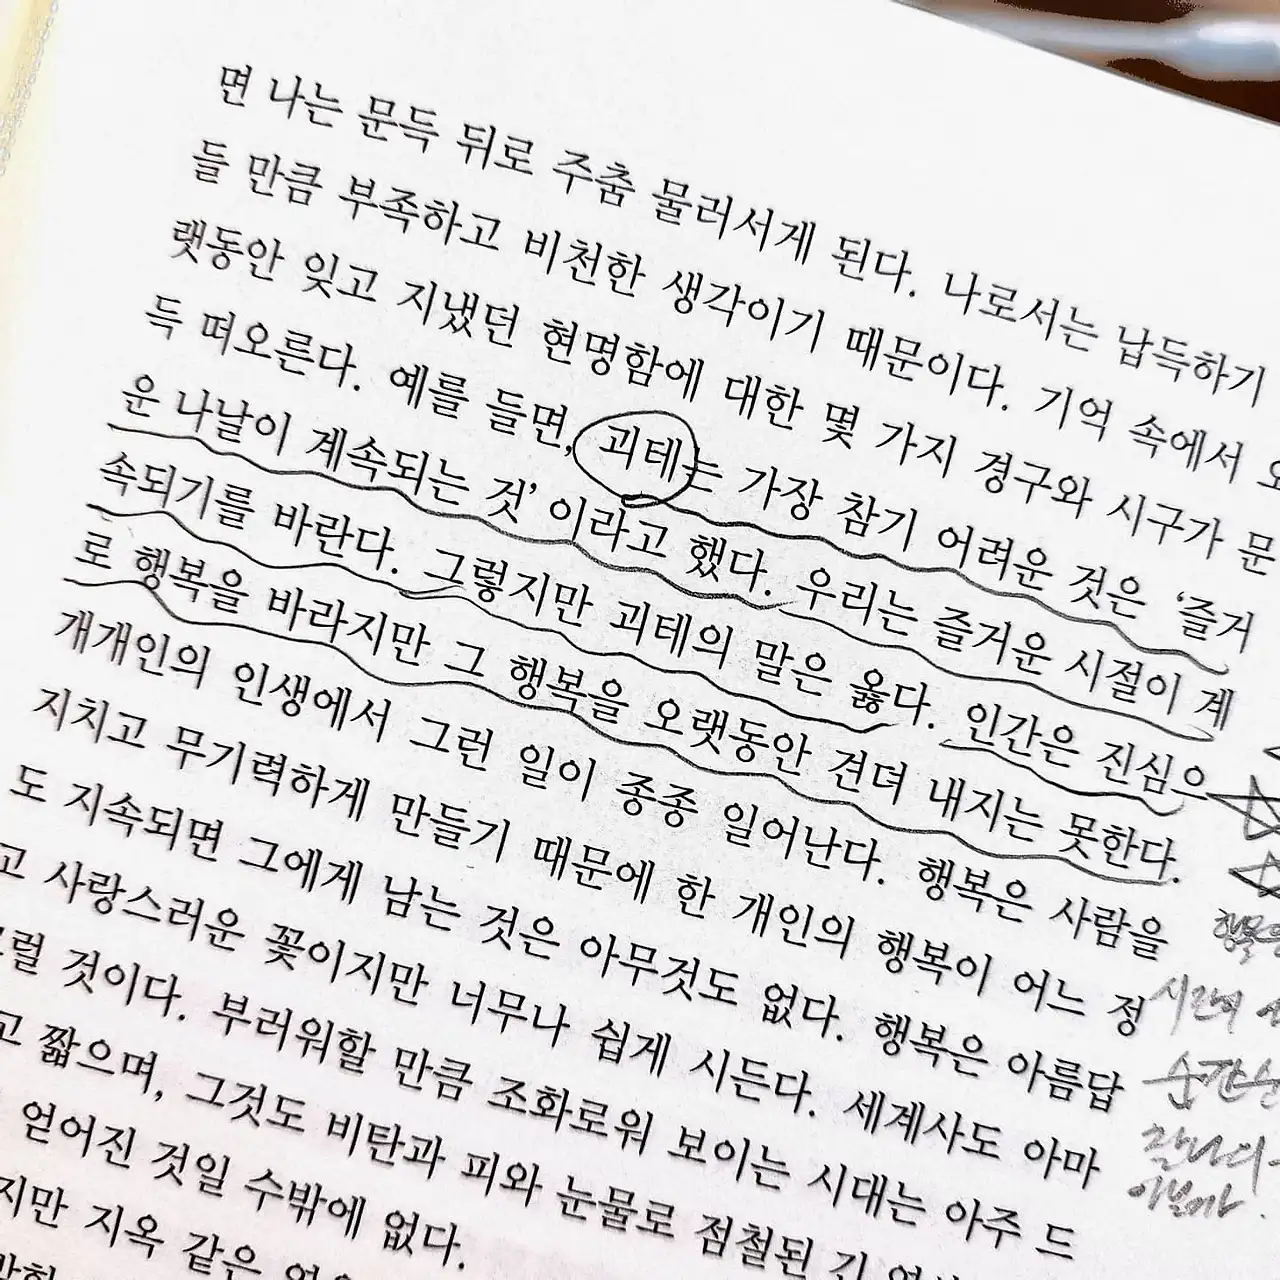 면 나는 문득 뒤로 주춤 물러서게 된다. 나로서는 납득하기
들 만큼 부족하고 비천한 생각이기 때문이다. 기억 속에서 오
랫동안 잊고 지냈던 현명함에 대한 몇 가지 경구와 시구가 문
득 떠오른다. 예를 들면, 괴테는 가장 참기 어려운 것은 ‘즐거
운 나날이 계속되는 것’이라고 했다. 우리는 즐거운 시절이 계
속되기를 바란다. 그렇지만 괴테의 말은 옳다. 인간은 진심으
로 행복을 바라지만 그 행복을 오랫동안 견뎌 내지는 못한다.
개개인의 인생에서 그런 일이 종종 일어난다. 행복은 사람을
지치고 무기력하게 만들기 때문에 한 개인의 행복이 어느 정
도 지속되면 그에게 남는 것은 아무것도 없다. 행복은 아름답
고 사랑스러운 꽃이지만 너무나 쉽게 시든다. 세계사도 아마
그럴 것이다. 부러워할 만큼 조화로워 보이는 시대는 아주 드
고 짧으며, 그것도 비탄과 피와 눈물로 점철된 긴
얻어진 것일 수밖에 없다.
지만 지옥 같은
행복은
시간의
순간
이볼까.